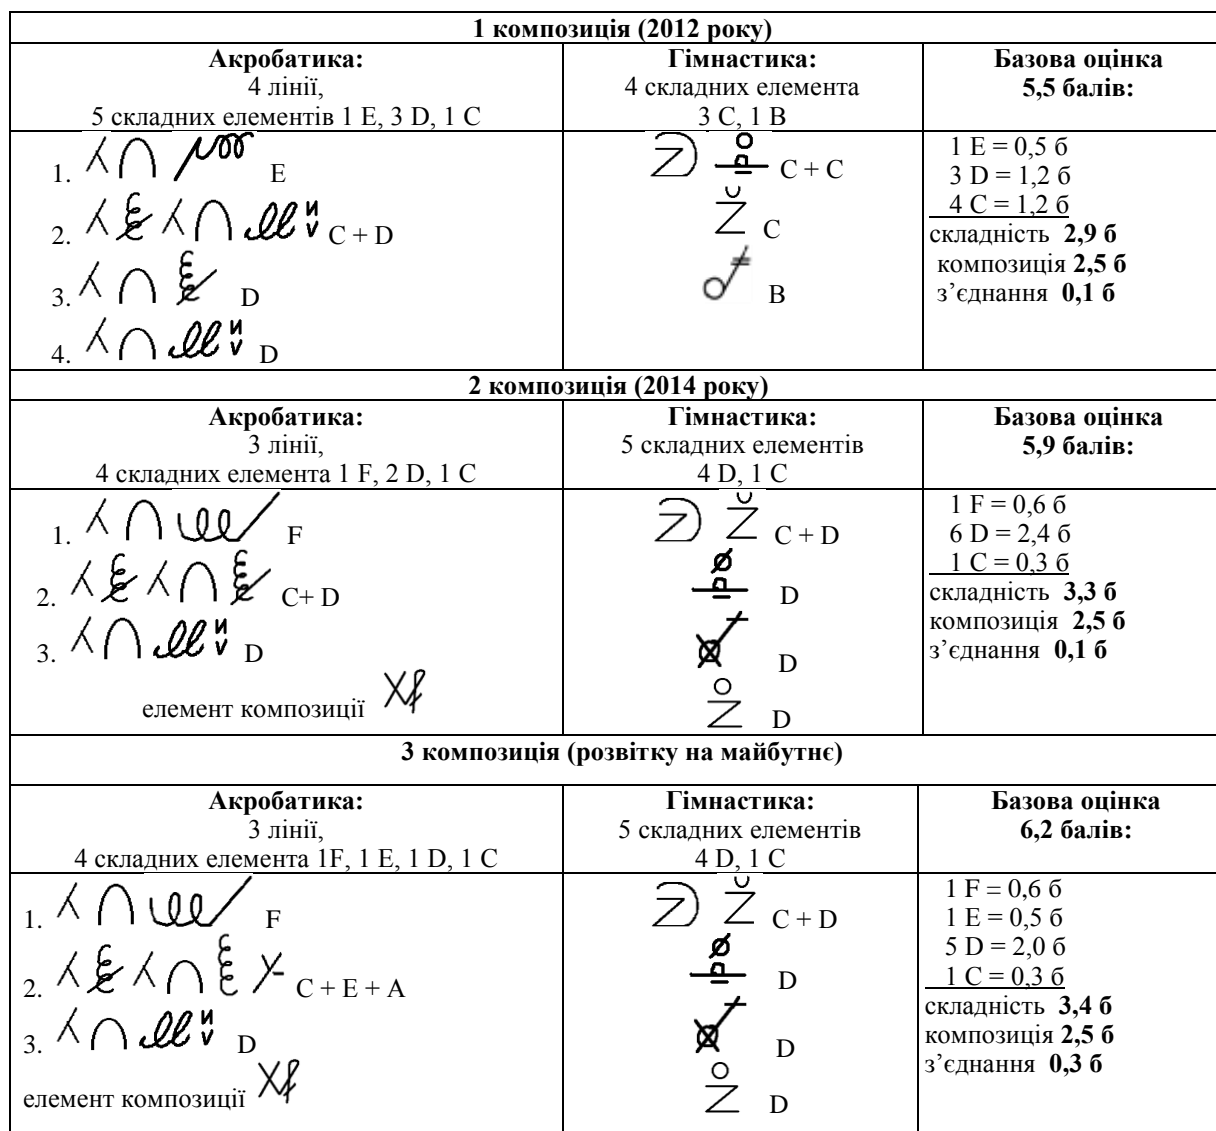 1 композиція (2012 року)
Акробатика:
4 лінії,
5 складних елементів 1 E, 3 D, 1 C
Гімнастика:
4 складних елемента
3 C, 1 B
Базова оцінка
5,5 балів:
1. E
2. C + D
3. D
4. D
C + C
C
B
1 E = 0,5 б
3 D = 1,2 б
4 C = 1,2 б
складність 2,9 б
композиція 2,5 б
з’єднання 0,1 б
2 композиція (2014 року)
Акробатика:
3 лінії,
4 складних елемента 1 F, 2 D, 1 C
Гімнастика:
5 складних елементів
4 D, 1 C
Базова оцінка
5,9 балів:
1. F
2. C+ D
3. D
елемент композиції
C + D
D
D
D
1 F = 0,6 б
6 D = 2,4 б
1 C = 0,3 б
складність 3,3 б
композиція 2,5 б
з’єднання 0,1 б
3 композиція (розвітку на майбутнє)
Акробатика:
3 лінії,
4 складних елемента 1F, 1 E, 1 D, 1 C
Гімнастика:
5 складних елементів
4 D, 1 C
Базова оцінка
6,2 балів:
1. F
2. C + E + A
3. D
елемент композиції
C + D
D
D
D
1 F = 0,6 б
1 E = 0,5 б
5 D = 2,0 б
1 C = 0,3 б
складність 3,4 б
композиція 2,5 б
з’єднання 0,3 б